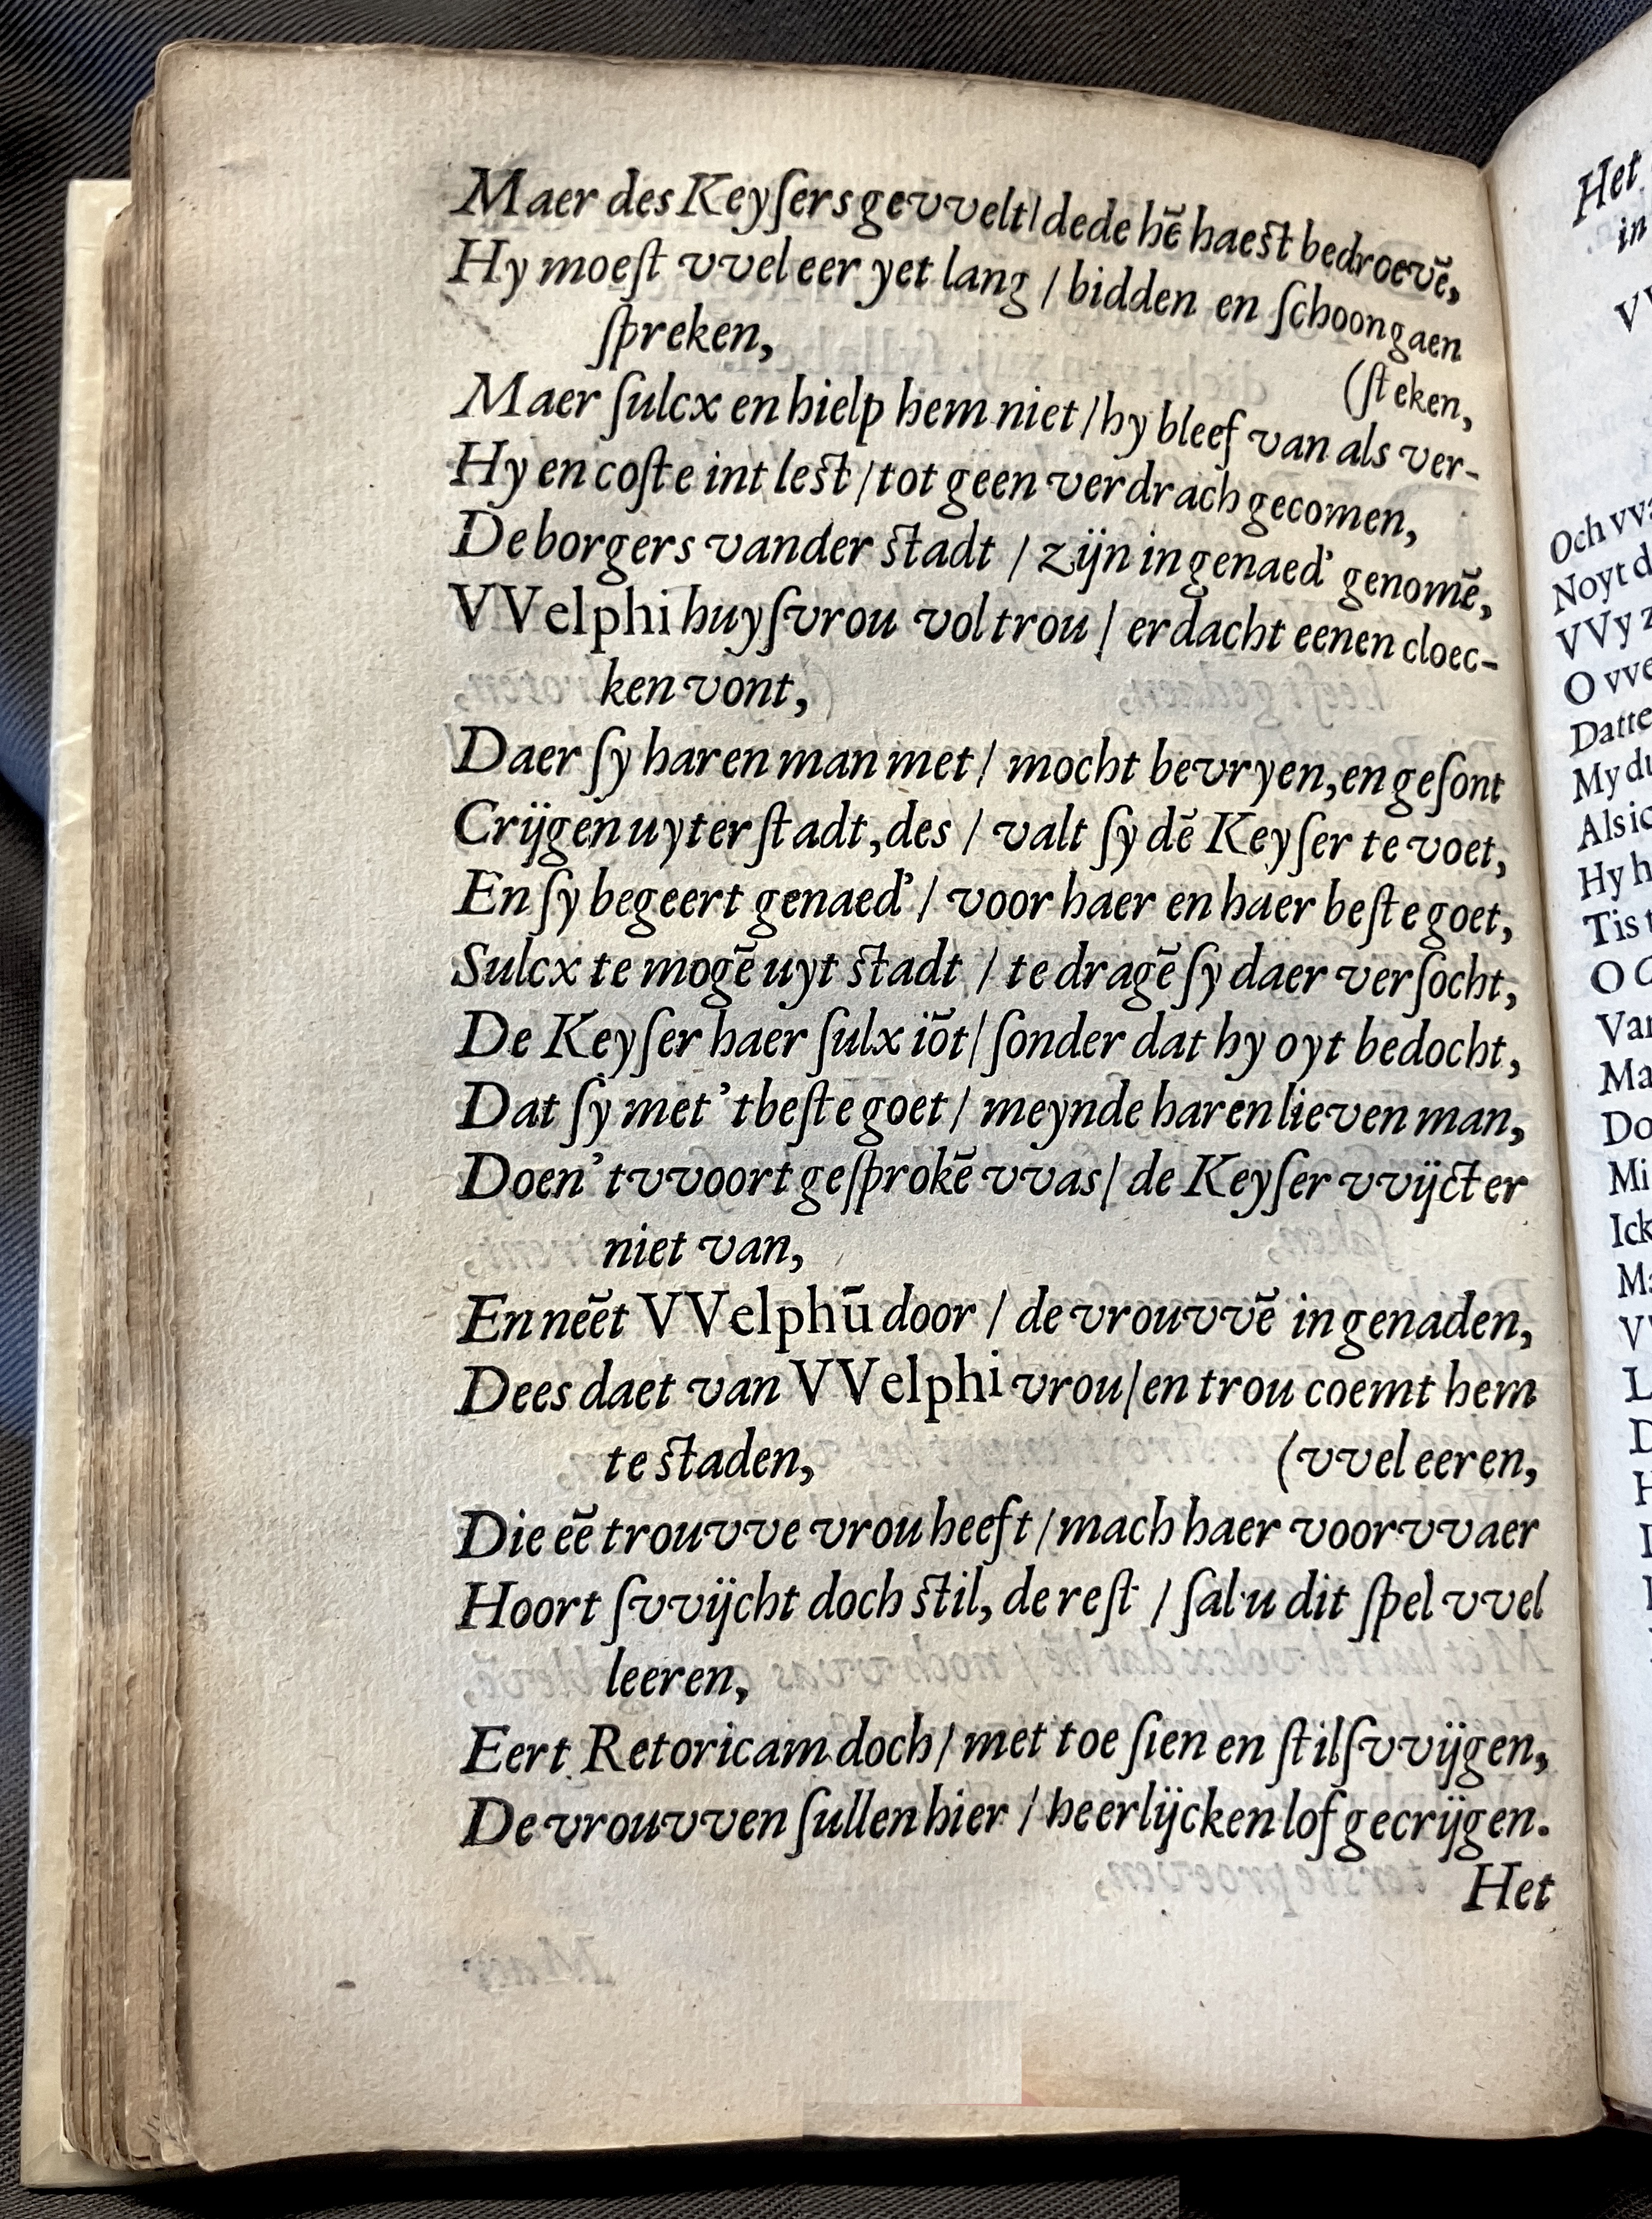 Maer des Keyſers gevvelt/dede hē haest bedroevē,
Hy moeſt vvel eer yet lang / bidden en ſchoon gaen
ſpreken,
(ſteken,
Maer ſulcx en hielp hem niet/hy bleef van als ver-
Hy en coſte int lest/tot geen verdrach gecomen,
De borgers vander stadt / zijn in genaed' genomē,
VVelphi huyſvrou vol trou / erdacht eenen cloec-
ken vont,
Daer ſy haren man met/ mocht bevryen, en geſont
Crijgen uyter ſtadt, des / valt ſy dē Keyſer te voet,
En ſy begeert genaed' / voor haer en haer beſte goet,
Sulcx te mogē uyt stadt / te dragē ſy daer verſocht,
De Keyſer haer ſulx iōt/ ſonder dat hy oyt bedocht,
Dat ſy met 'tbeſte goet/ meynde haren lieven man,
Doen 't vvoort geſprokē vvas/ de Keyſer vvijct er
niet van,
En nēēt VVelphū door / de vrouvvē in genaden,
Dees daet van VVelphi vrou/en trou coemt hem
te staden,
(vvel eeren,
Die eē trouvve vrou heeft/mach haer voorvvaer
Hoort ſvvijcht doch stil, de reſt / ſal u dit ſpel vvel
leeren,
Eert Retoricam doch/ met toe ſien en ſtilſvvijgen,
De vrouvven ſullen hier / heerlijcken lof gecrijgen.
Het
Het
in
Och
Noyt
VVy
O
Datte
My
Als
Hy
Tis
O